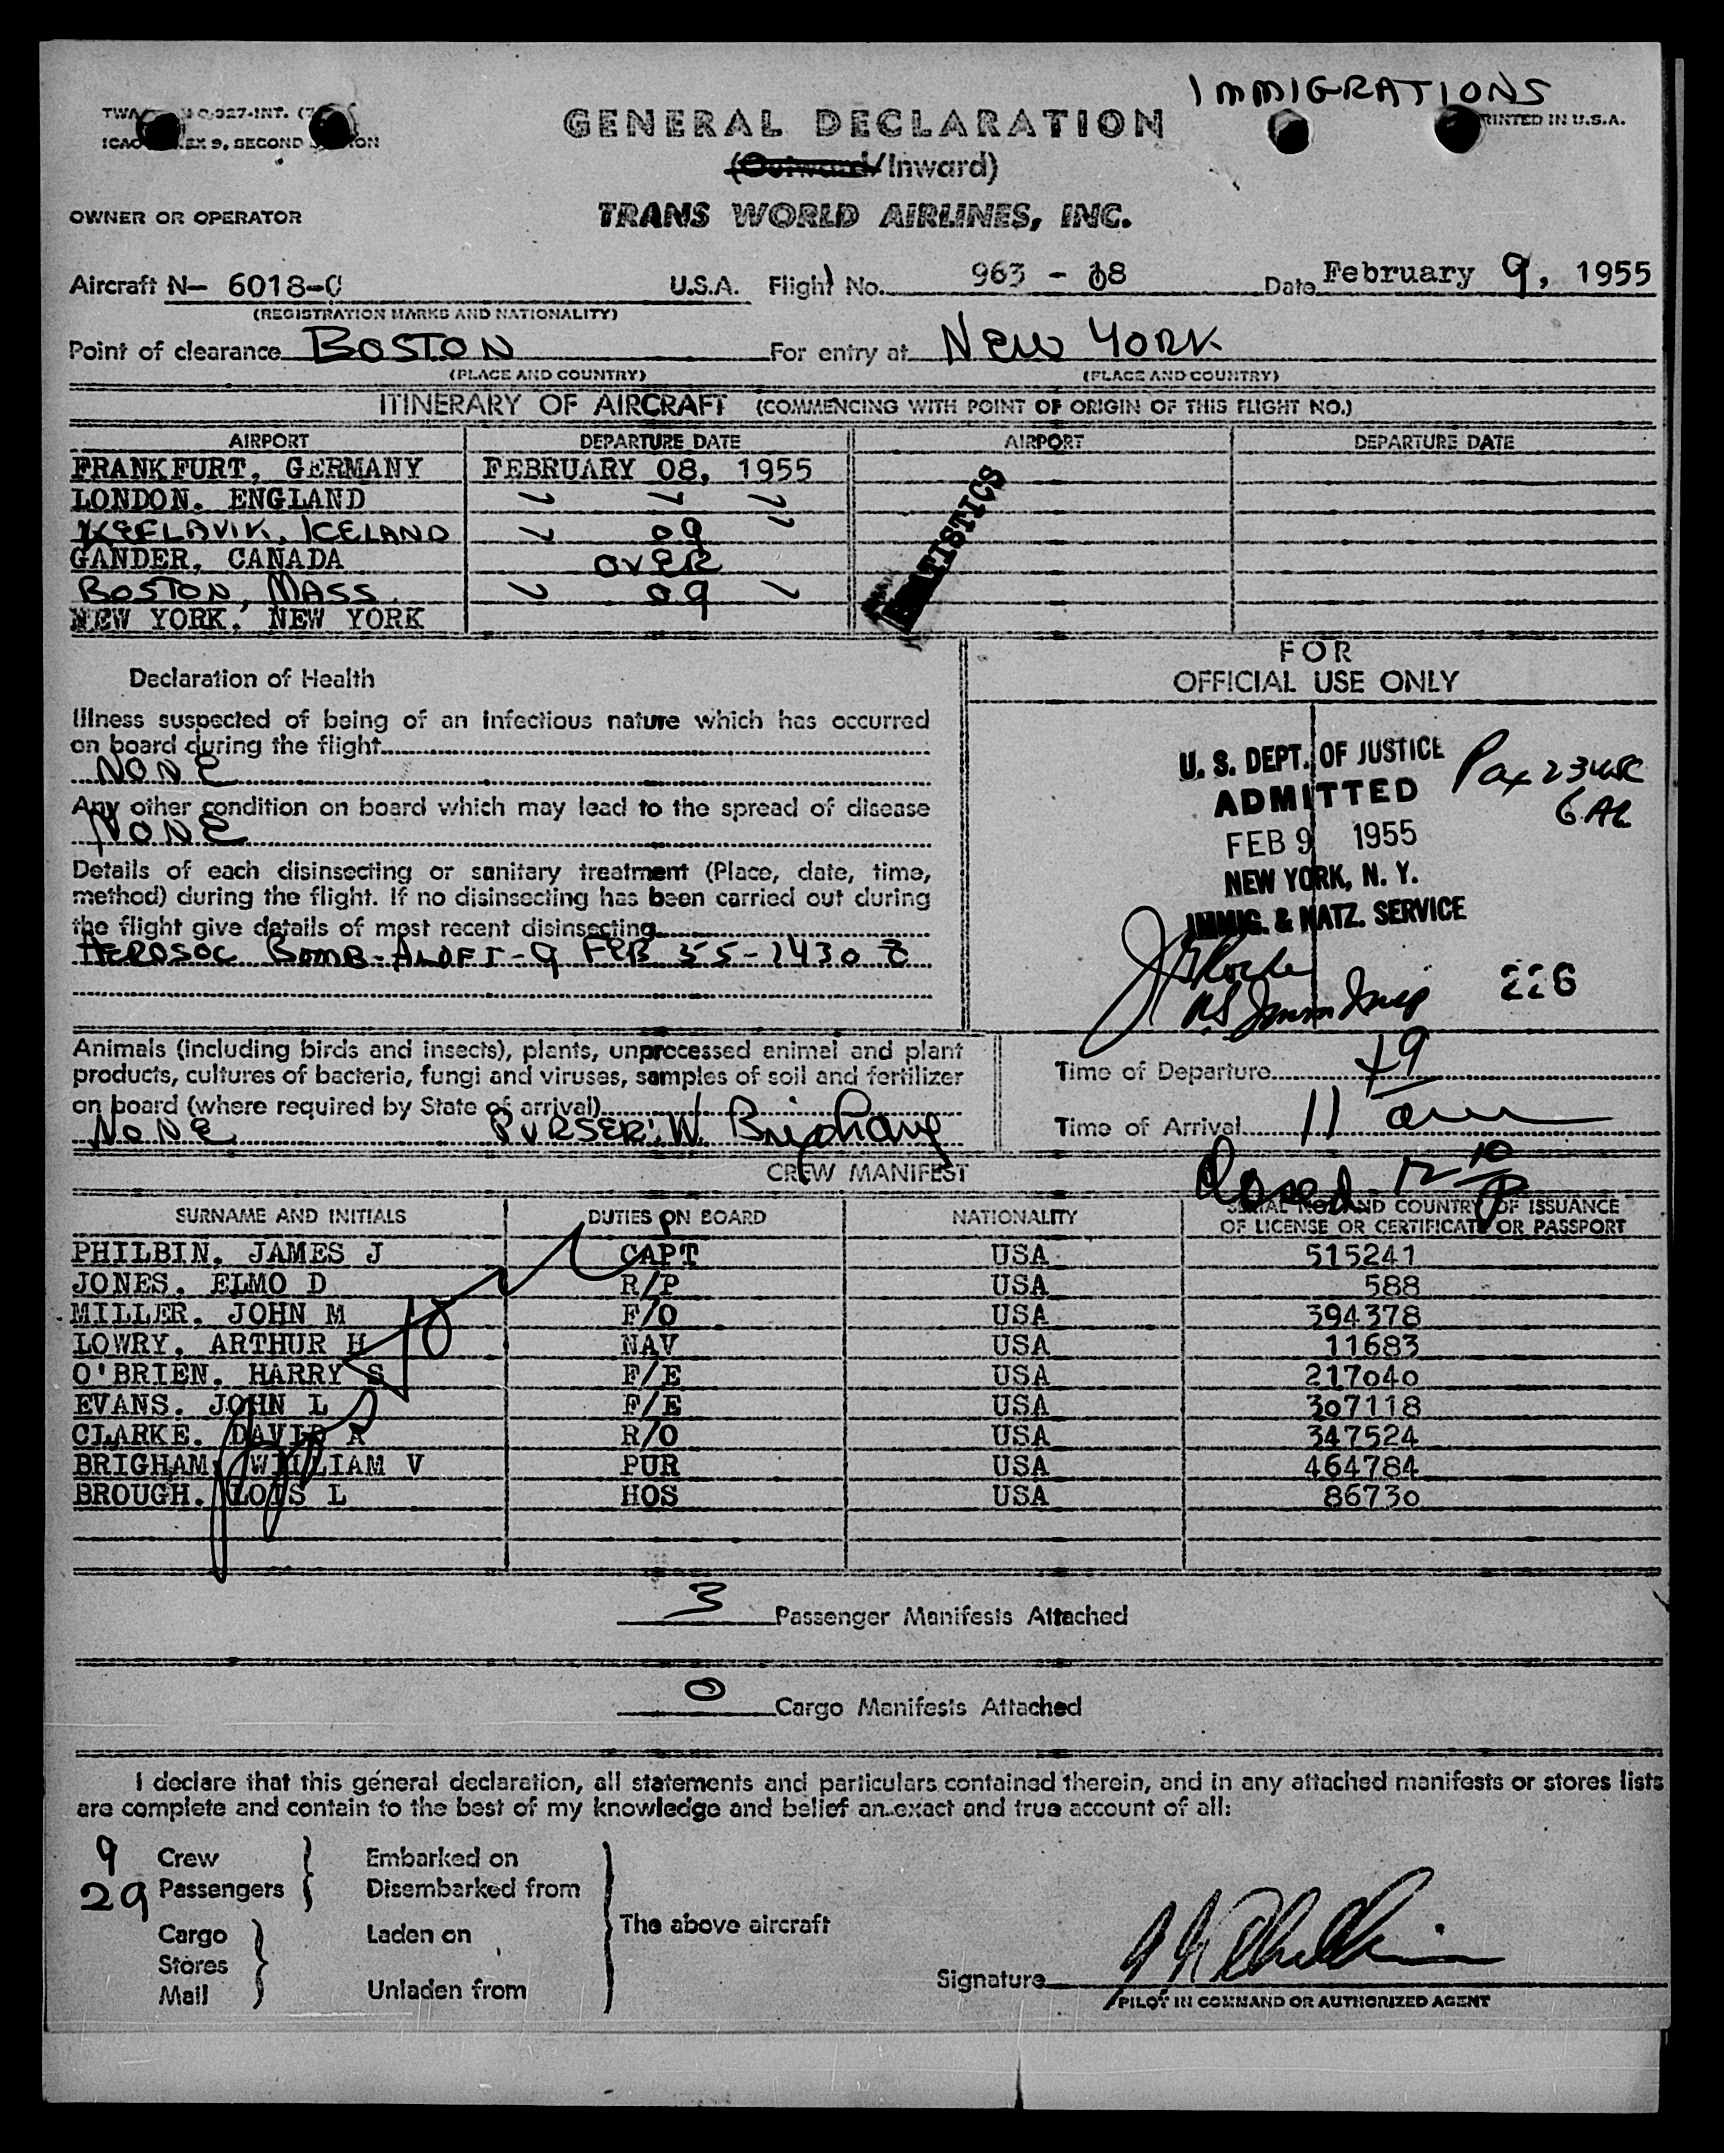 IMMIGRATIONS
GENERAL DECLARATION
PRINTED IN U.S.A.
(Outward/Inward)
OWNER OR OPERATOR
TRANS WORLD AIRLINES, INC.
Aircraft N- 6018-C U.S.A. Flight No. 963 - 08 Date February 9, 1955
(REGISTRATION MARKS AND NATIONALITY)
Point of clearance BOSTON For entry at NEW YORK
(PLACE AND COUNTRY) (PLACE AND COUNTRY)
ITINERARY OF AIRCRAFT (COMMENCING WITH POINT OF ORIGIN OF THIS FLIGHT NO.)
AIRPORT DEPARTURE DATE AIRPORT DEPARTURE DATE
FRANKFURT, GERMANY FEBRUARY 08, 1955
LONDON. ENGLAND " " "
KEFLAVIK, ICELAND " 09 "
GANDER, CANADA OVER
BOSTON, MASS. " 09 "
NEW YORK. NEW YORK
STATISTICS
Declaration of Health
Illness suspected of being of an infectious nature which has occurred
on board during the flight
NONE
Any other condition on board which may lead to the spread of disease
NONE
Details of each disinsecting or sanitary treatment (Place, date, time,
method) during the flight. If no disinsecting has been carried out during
the flight give details of most recent disinsecting
AEROSOL BOMB-ALOFT-9 FEB 55-1430 Z
FOR
OFFICIAL USE ONLY
U. S. DEPT. OF JUSTICE
ADMITTED
FEB 9 1955
NEW YORK, N. Y.
IMMIG. & NATZ. SERVICE
Pax 23 USC
6 AL
226
Animals (including birds and insects), plants, unprocessed animal and plant
products, cultures of bacteria, fungi and viruses, samples of soil and fertilizer
on board (where required by State of arrival)
NONE PURSER: W. Brigham
Time of Departure
Time of Arrival 11 am
CREW MANIFEST
SURNAME AND INITIALS DUTIES ON BOARD NATIONALITY SERIAL NO. AND COUNTRY OF ISSUANCE
OF LICENSE OR CERTIFICATE OR PASSPORT
PHILBIN, JAMES J CAPT USA 515241
JONES, ELMO D R/P USA 588
MILLER, JOHN M F/O USA 394378
LOWRY, ARTHUR H NAV USA 11683
O'BRIEN, HARRY S F/E USA 217040
EVANS. JOHN L F/E USA 307118
CLARKE. DAVID A R/O USA 347524
BRIGHAM, WILLIAM V PUR USA 464784
BROUGH. LOIS L HOS USA 86730
3 Passenger Manifests Attached
0 Cargo Manifests Attached
I declare that this general declaration, all statements and particulars contained therein, and in any attached manifests or stores lists
are complete and contain to the best of my knowledge and belief an exact and true account of all:
9 Crew Embarked on
29 Passengers Disembarked from
The above aircraft
Cargo Laden on
Stores
Mail Unladen from
Signature
PILOT IN COMMAND OR AUTHORIZED AGENT